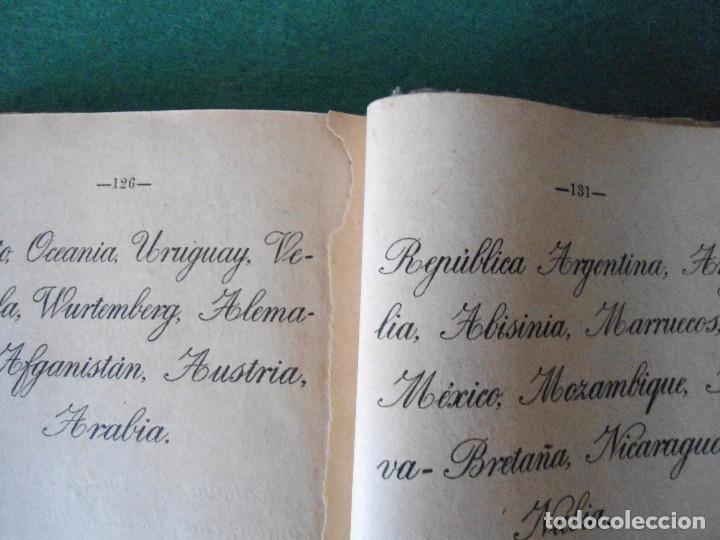 —126—
to, Oceania, Uruguay, Ve-
la, Wurtemberg, Alema-
Afganistán, Austria,
Arabia.
—131—
República Argentina,
lia, Abisinia, Marruecos,
México, Mozambique,
va- Bretaña, Nicaragua
todocoleccion